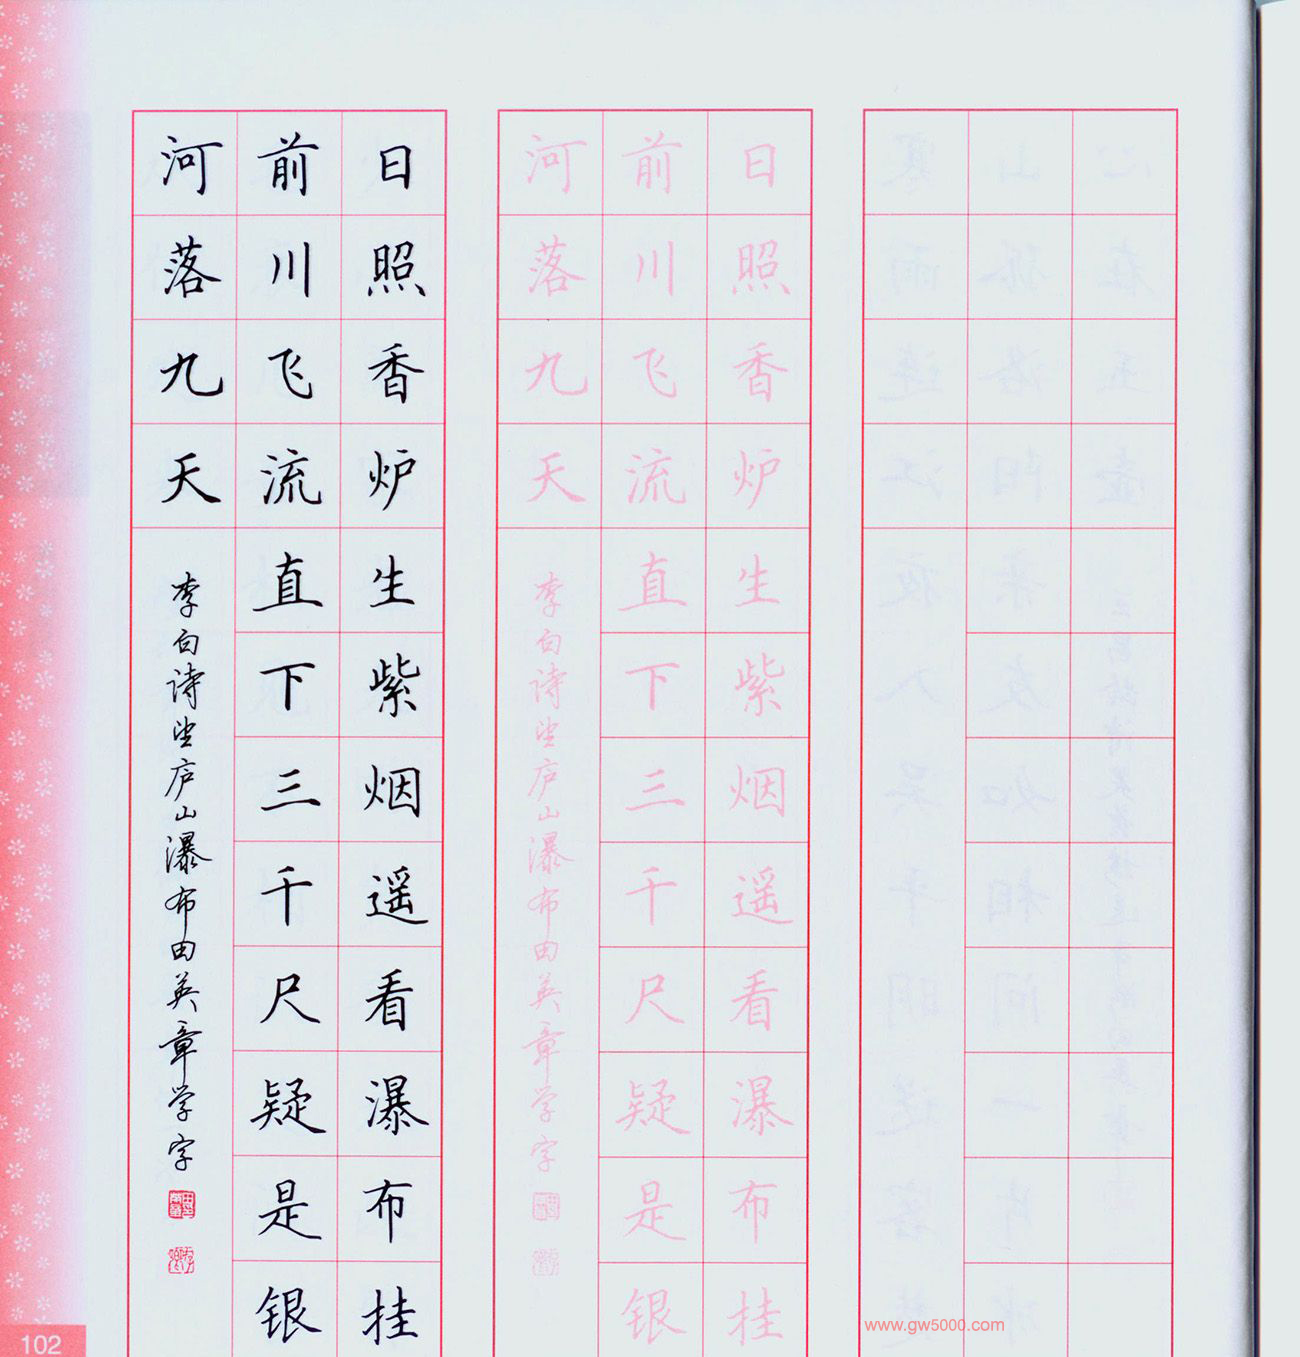 日照香炉生紫烟遥看瀑布挂
前川飞流直下三千尺疑是银
河落九天
李白诗望庐山瀑布田英章学字
日照香炉生紫烟遥看瀑布挂
前川飞流直下三千尺疑是银
河落九天
李白诗望庐山瀑布田英章学字
www.gw5000.com
102